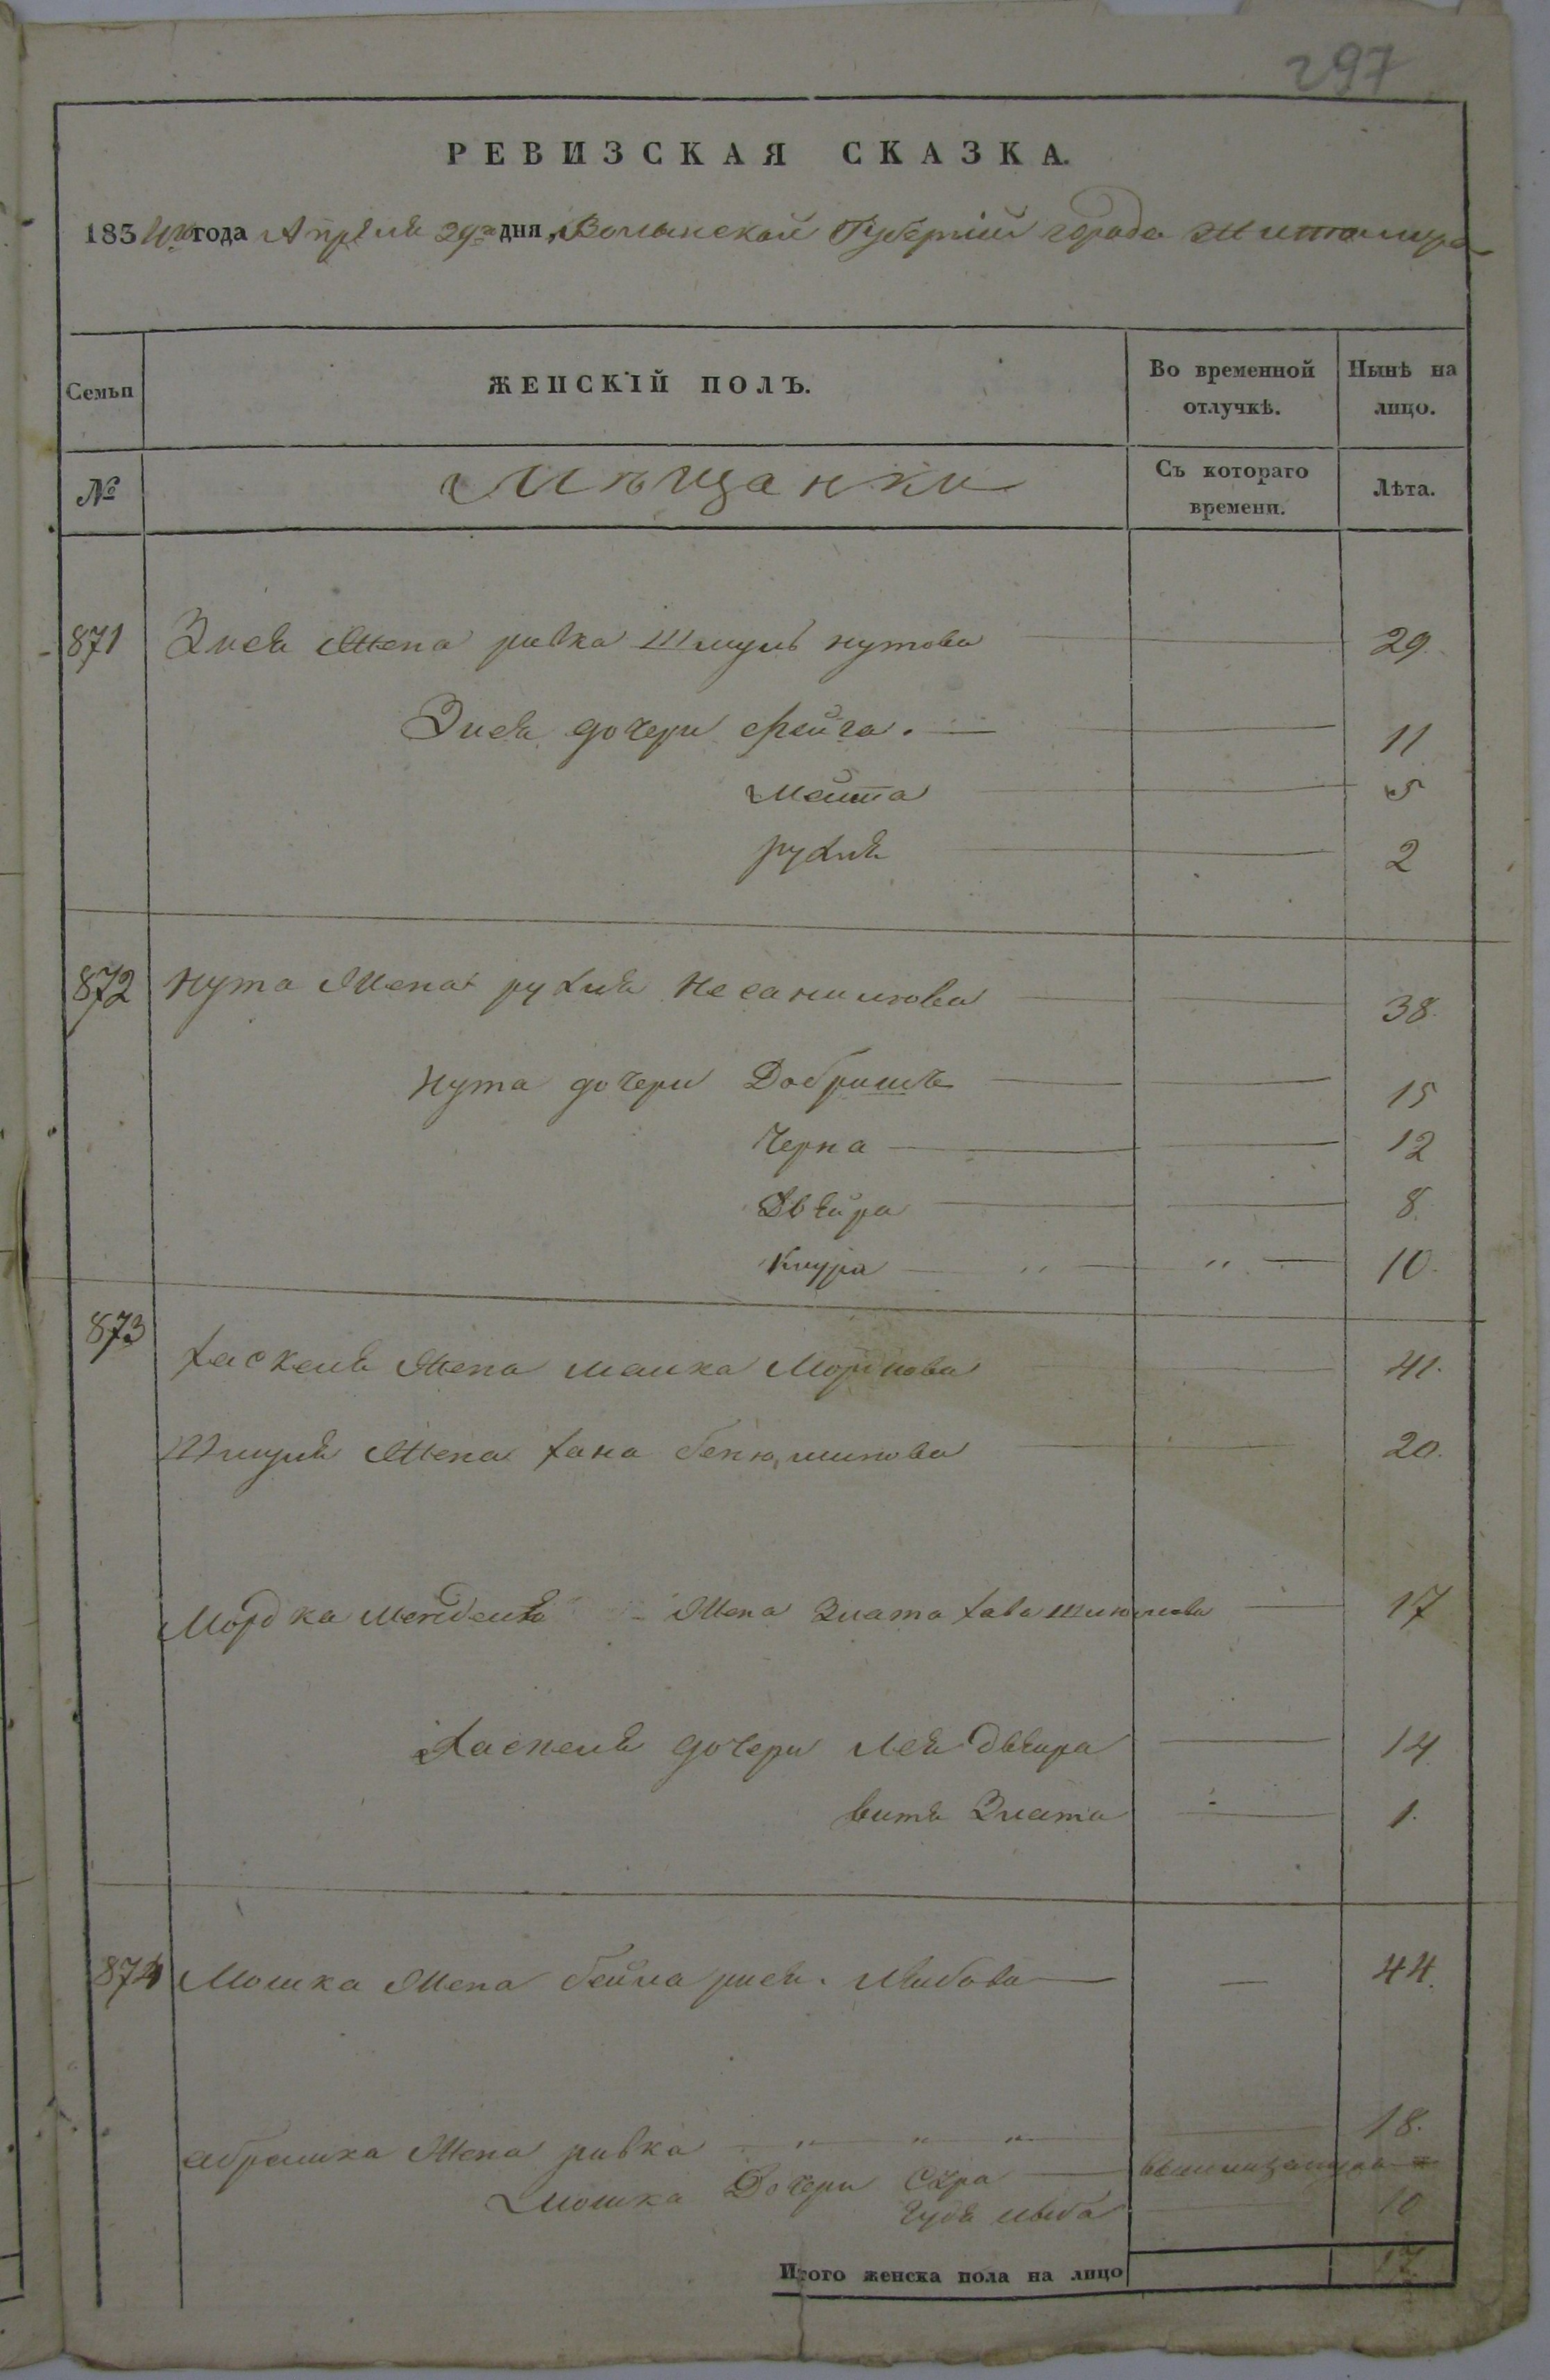 297
РЕВИЗСКАЯ СКАЗКА.
1834го года Апреля 29го дня, Волынской Губернии города Житомира
Семьи ЖЕНСКІЙ ПОЛЪ. Во временной отлучкѣ. Нынѣ на лицо.
№ Мѣщанки Съ котораго времени. Лѣта.
871 Зися Жена ривка Шмуль нутова 29.
Зися дочери фейга. 11
Мейта 5
рухля 2
872 Нута Жена рухля 38.
Нута дочери Добришъ 15
Черна 12
Двейра 8
10.
873
Хаскеля Жена малка Моркова 41.
Шмуля Жена хана бенюминова 20.
Мордка Менделя Жена Злата хава 17
Хаскеля дочери Лея двейра 14
витя Злата 1.
874 Мошка Жена бейла рися. Лейбова 44.
абрамка Жена ривка " " " 18.
Мошка Дочери Сура вышла замужъ
10
Итого женска пола на лицо 17